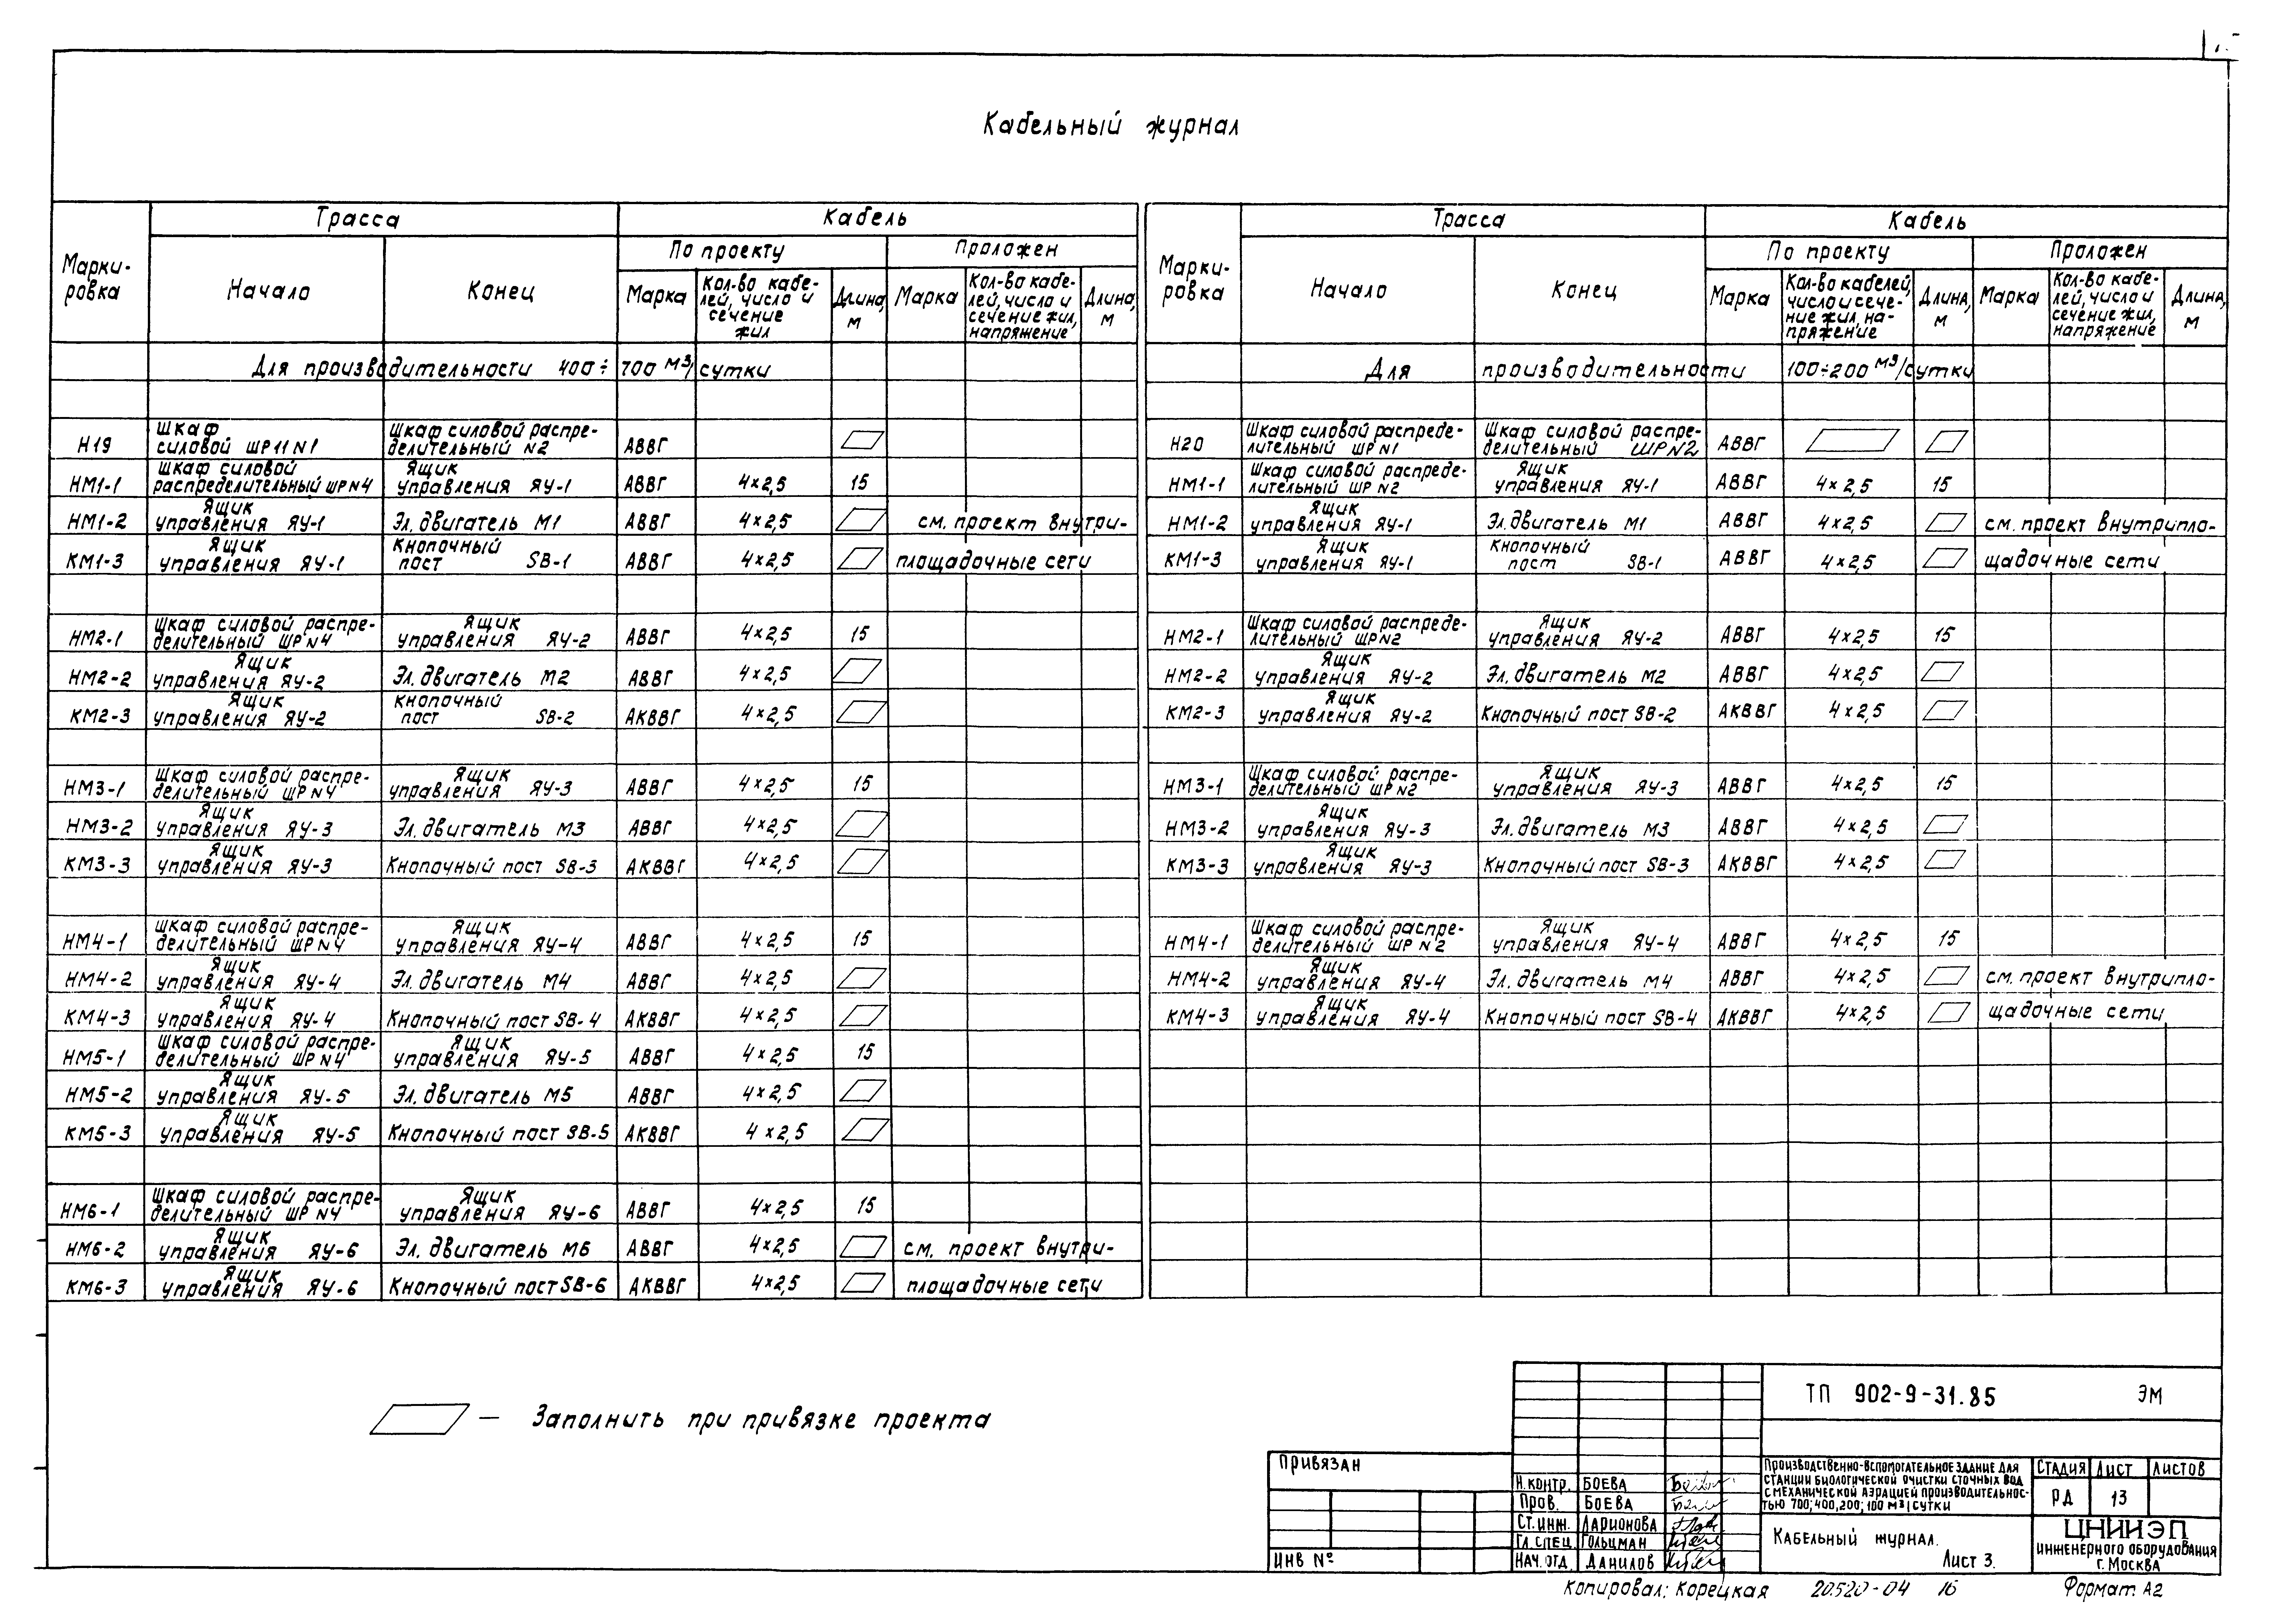 Кабельный журнал
Марки-
ровка
Трасса
Кабель
Начало
Конец
По проекту
Проложен
Марка
Кол-во кабе-
лей, число и
сечение
жил
Длина,
м
Марка
Кол-во кабе-
лей, число и
сечение жил,
напряжение
Длина,
м
Для производительности 400÷700 м³/сутки
Н19 Шкаф силовой ШР11 N1 Шкаф силовой распре-делительный N2 АВВГ
НМ1-1 Шкаф силовой распределительный ШР N4 Ящик управления ЯУ-1 АВВГ 4×2,5 15
НМ1-2 Ящик управления ЯУ-1 Эл. двигатель М1 АВВГ 4×2,5 см. проект внутри-
КМ1-3 Ящик управления ЯУ-1 Кнопочный пост SB-1 АВВГ 4×2,5 площадочные сети
НМ2-1 Шкаф силовой распре-делительный ШР N4 Ящик управления ЯУ-2 АВВГ 4×2,5 15
НМ2-2 Ящик управления ЯУ-2 Эл. двигатель М2 АВВГ 4×2,5
КМ2-3 Ящик управления ЯУ-2 Кнопочный пост SB-2 АКВВГ 4×2,5
НМ3-1 Шкаф силовой распре-делительный ШР N4 Ящик управления ЯУ-3 АВВГ 4×2,5 15
НМ3-2 Ящик управления ЯУ-3 Эл. двигатель М3 АВВГ 4×2,5
КМ3-3 Ящик управления ЯУ-3 Кнопочный пост SB-3 АКВВГ 4×2,5
НМ4-1 Шкаф силовой распре-делительный ШР N4 Ящик управления ЯУ-4 АВВГ 4×2,5 15
НМ4-2 Ящик управления ЯУ-4 Эл. двигатель М4 АВВГ 4×2,5
КМ4-3 Ящик управления ЯУ-4 Кнопочный пост SB-4 АКВВГ 4×2,5
НМ5-1 Шкаф силовой распре-делительный ШР N4 Ящик управления ЯУ-5 АВВГ 4×2,5 15
НМ5-2 Ящик управления ЯУ-5 Эл. двигатель М5 АВВГ 4×2,5
КМ5-3 Ящик управления ЯУ-5 Кнопочный пост SB-5 АКВВГ 4×2,5
НМ6-1 Шкаф силовой распре-делительный ШР N4 Ящик управления ЯУ-6 АВВГ 4×2,5 15
НМ6-2 Ящик управления ЯУ-6 Эл. двигатель М6 АВВГ 4×2,5 см. проект внутри-
КМ6-3 Ящик управления ЯУ-6 Кнопочный пост SB-6 АКВВГ 4×2,5 площадочные сети
Марки-
ровка
Трасса
Кабель
Начало
Конец
По проекту
Проложен
Марка
Кол-во кабелей,
число и сече-
ние жил, на-
пряжение
Длина,
м
Марка
Кол-во кабе-
лей, число и
сечение жил,
напряжение
Длина,
м
Для производительности 100÷200 м³/сутки
Н20 Шкаф силовой распреде-лительный ШР N1 Шкаф силовой распре-делительный ШР N2 АВВГ
НМ1-1 Шкаф силовой распреде-лительный ШР N2 Ящик управления ЯУ-1 АВВГ 4×2,5 15
НМ1-2 Ящик управления ЯУ-1 Эл. двигатель М1 АВВГ 4×2,5 см. проект внутрипло-
КМ1-3 Ящик управления ЯУ-1 Кнопочный пост SB-1 АВВГ 4×2,5 щадочные сети
НМ2-1 Шкаф силовой распреде-лительный ШР N2 Ящик управления ЯУ-2 АВВГ 4×2,5 15
НМ2-2 Ящик управления ЯУ-2 Эл. двигатель М2 АВВГ 4×2,5
КМ2-3 Ящик управления ЯУ-2 Кнопочный пост SB-2 АКВВГ 4×2,5
НМ3-1 Шкаф силовой распре-делительный ШР N2 Ящик управления ЯУ-3 АВВГ 4×2,5 15
НМ3-2 Ящик управления ЯУ-3 Эл. двигатель М3 АВВГ 4×2,5
КМ3-3 Ящик управления ЯУ-3 Кнопочный пост SB-3 АКВВГ 4×2,5
НМ4-1 Шкаф силовой распре-делительный ШР N2 Ящик управления ЯУ-4 АВВГ 4×2,5 15
НМ4-2 Ящик управления ЯУ-4 Эл. двигатель М4 АВВГ 4×2,5 см. проект внутрипло-
КМ4-3 Ящик управления ЯУ-4 Кнопочный пост SB-4 АКВВГ 4×2,5 щадочные сети
— Заполнить при привязке проекта
Привязан
ИНВ №
Н.контр. Боева
Пров. Боева
Ст.инж. Ларионова
Гл.спец. Гольцман
Нач.отд. Данилов
ТП 902-9-31.85 ЭМ
Производственно-вспомогательное здание для
станции биологической очистки сточных вод
с механической аэрацией производительнос-
тью 700; 400, 200; 100 м³/сутки
Стадия Лист Листов
РД 13
Кабельный журнал.
Лист 3.
ЦНИИЭП
инженерного оборудования
г. Москва
Копировал: Корецкая 20520-04 16 Формат А2